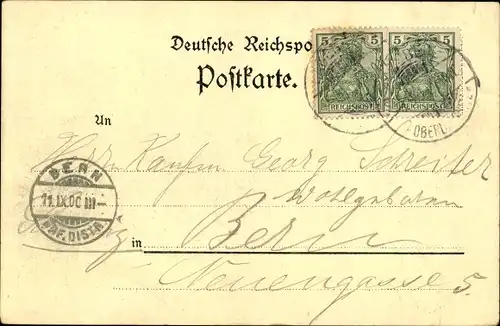 Deutsche Reichspo
Postkarte.
5 5 5 5
REICHSPOST REICHSPOST
OBERL
An
Herrn Kaufm Georg Schreiter
Wohlgeboren
BERN
11.IX.00 III-
BRF.DISTR.
in Bern
Neuengasse 5.